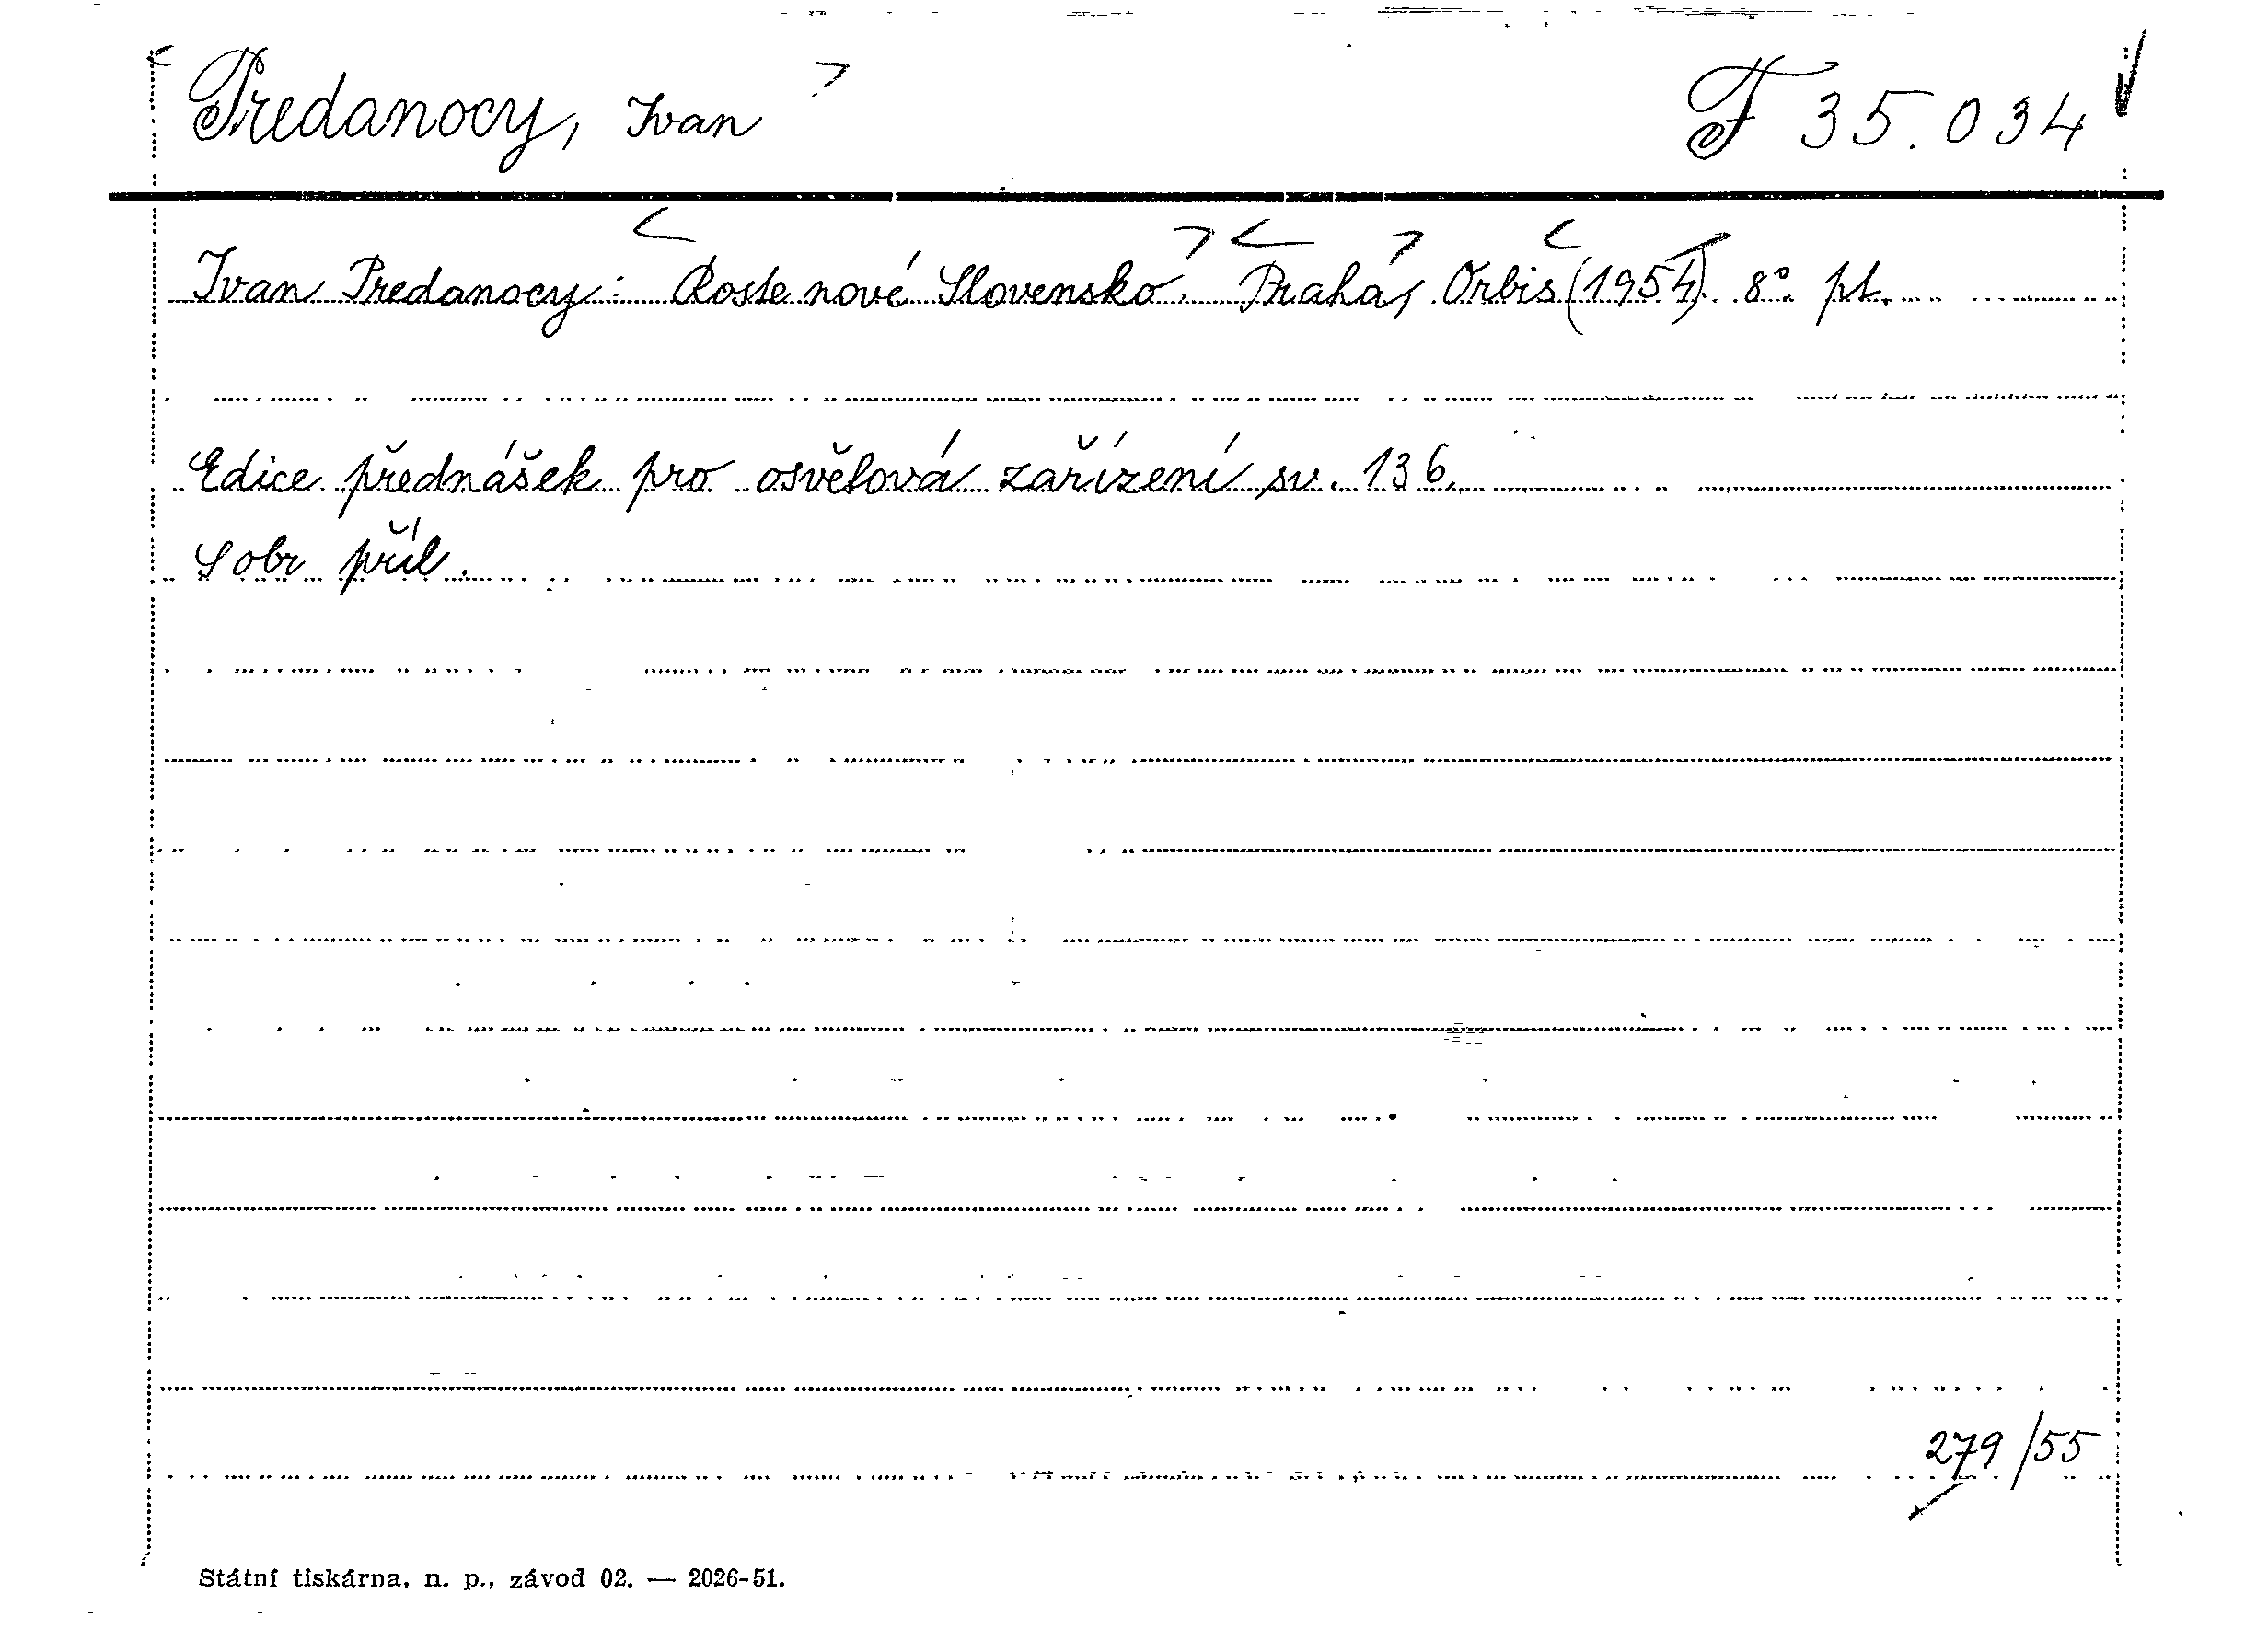 Predanocy, Ivan F 35.034
Ivan Predanocy: Roste nové Slovensko. Praha, Orbis (1954). 8° pt.
Edice přednášek pro osvětová zařízení sv. 136.
S obr příl.
279/55
Státní tiskárna, n. p., závod 02. — 2026-51.